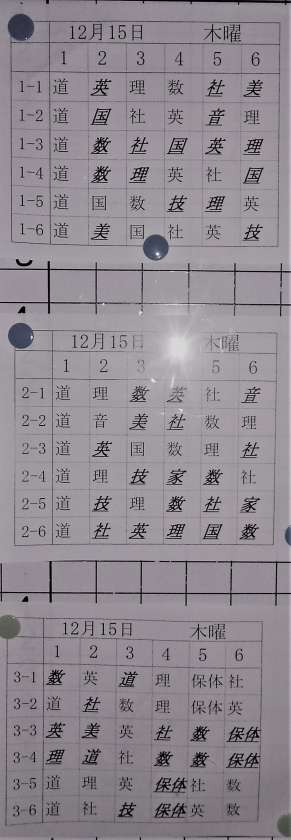 12月15日 木曜
1 2 3 4 5 6
1-1 道 英 理 数 社 美
1-2 道 国 社 英 音 理
1-3 道 数 社 国 英 理
1-4 道 数 理 英 社 国
1-5 道 国 数 技 理 英
1-6 道 美 国 社 英 技
12月15日 木曜
1 2 3 5 6
2-1 道 理 数 英 社 音
2-2 道 音 美 社 数 理
2-3 道 英 国 数 理 社
2-4 道 理 技 家 数 社
2-5 道 技 理 数 社 家
2-6 道 社 英 理 国 数
12月15日 木曜
1 2 3 4 5 6
3-1 数 英 道 理 保体 社
3-2 道 社 数 理 保体 英
3-3 英 美 英 社 数 保体
3-4 理 道 社 数 数 保体
3-5 道 理 英 保体 社 数
3-6 道 社 技 保体 英 数